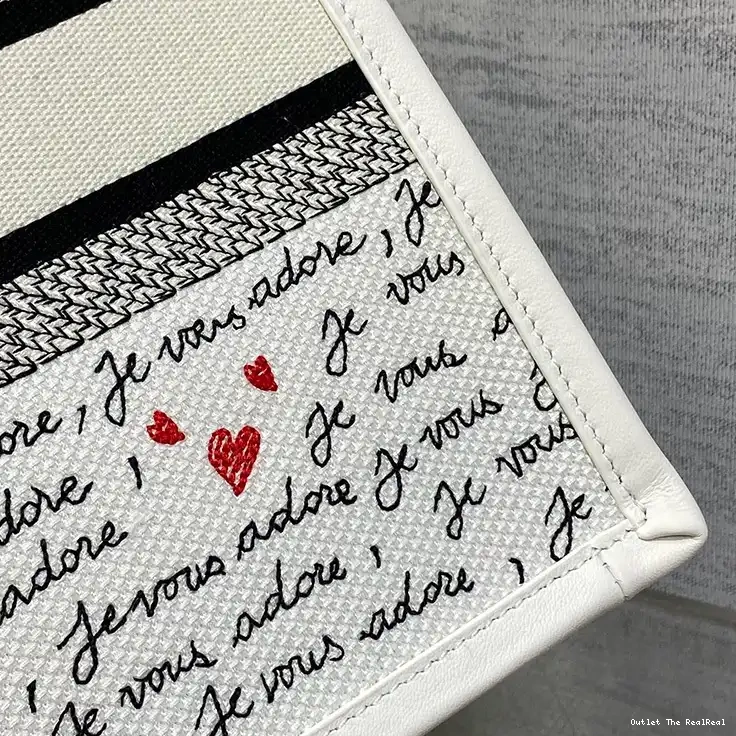 Je
ore, Je vous adore,
Je vous
dore, Je vous a
adore Je vous adore Je vous
Je vous adore, Je vous
, Je vous adore, Je
Je vous adore,
Outlet The RealReal